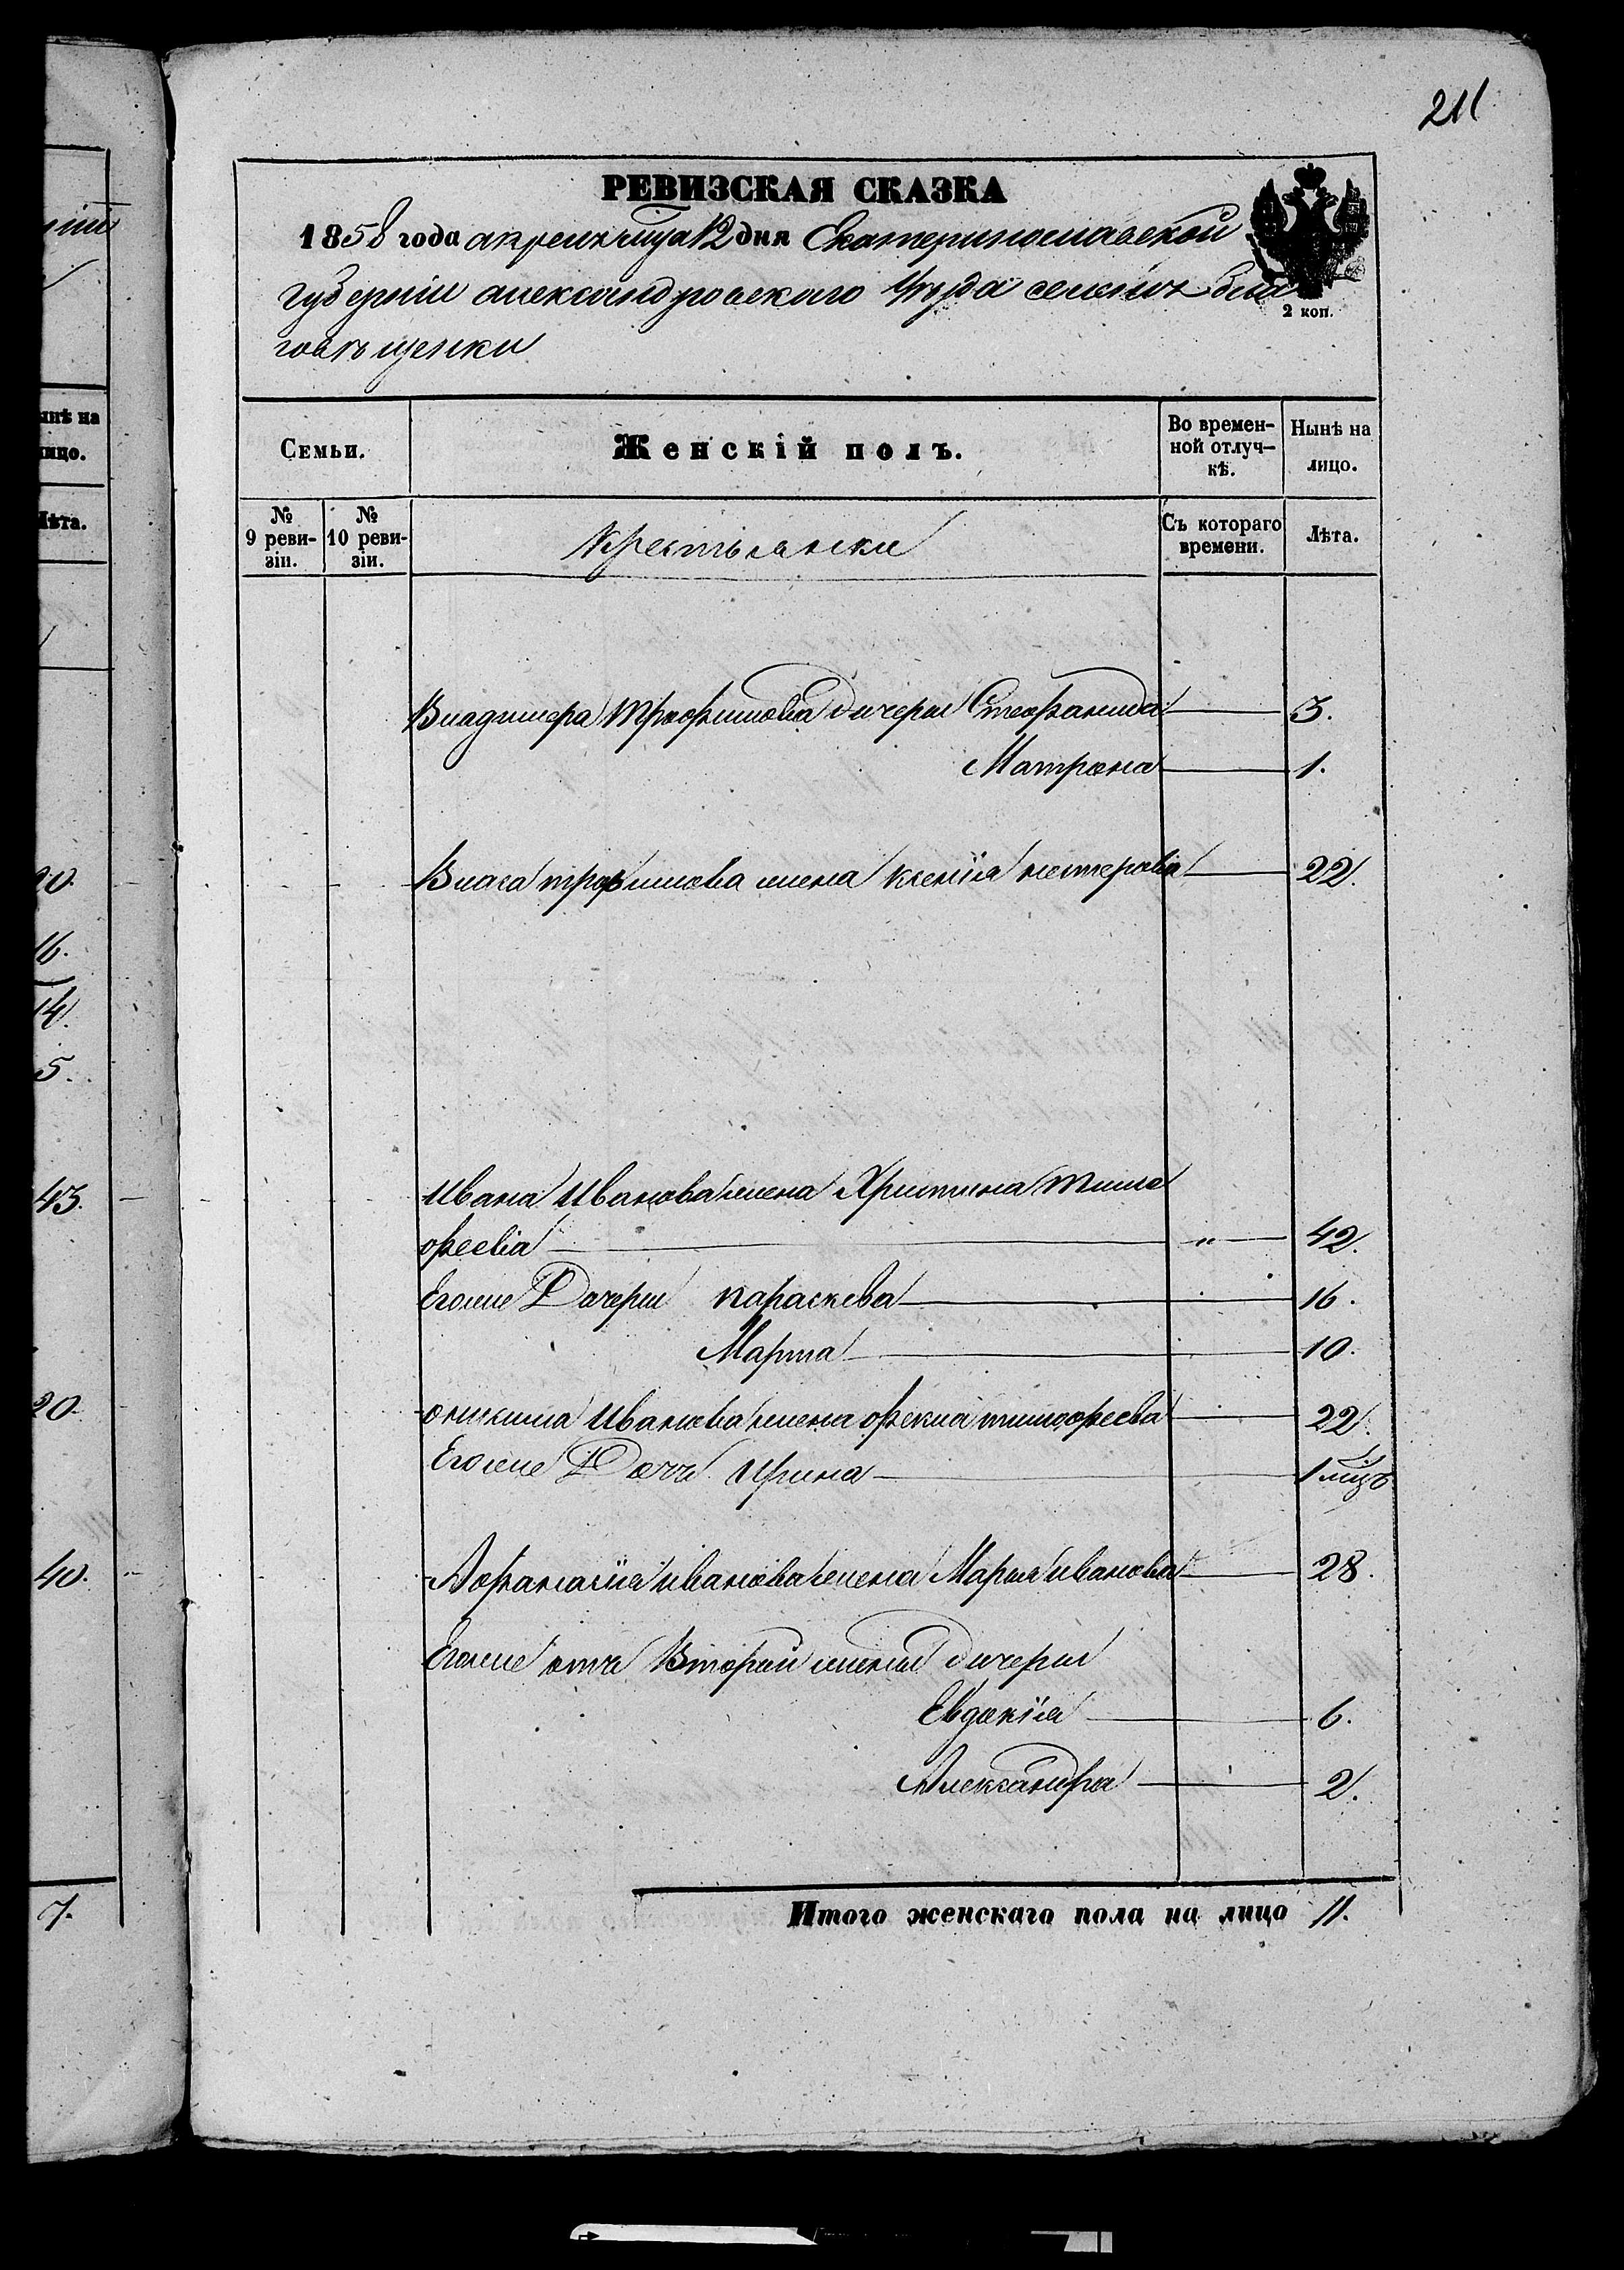 211
РЕВИЗСКАЯ СКАЗКА
1858 года апреля мца 12 дня Екатеринославской
губерніи александровскаго уезда селенія Бла
говещенки
2 коп.
Семьи.
Женскій полъ.
Во времен-
ной отлуч-
кѣ.
Нынѣ на
лицо.
№
9 реви-
зіи.
№
10 реви-
зіи.
крестьянки
Съ котораго
времени.
Лѣта.
Владимера Трофимова дичери Стефанида 3.
Матрона 1.
Власа трофимова жена ксенія нестерова 22.
Ивана Иванова жена Христина Тимо
феева " 42.
Егоже Дочери параскева 16.
Марта 10.
онисима Иванова жена фекла тимофеева 22.
Егоже Дочь Ирина 1 мцъ
Афанасія иванова жена Марья иванова 28.
Егоже отъ Второй жены дичери
Евдокія 6.
Александра 2.
Итого женскаго пола на лицо 11.
нѣ на
лицо.
Лѣта.
20.
16.
14.
5.
43.
20.
40.
7.